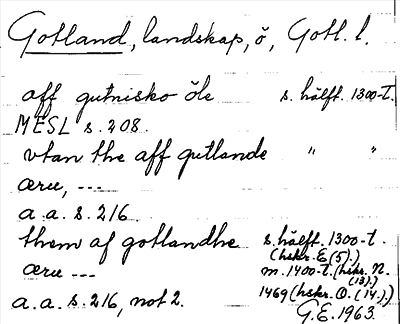 Gotland, landskap, ö, Gotl. l.
aff gutnisko öle s. hälft. 1300-t.
MESL s. 208.
vtan the aff gutlande " "
æru, ---
a.a. s. 216
them af gotlandhe s. hälft. 1300-t.
(hskr. E (5).)
æru --- m. 1400-t. (hskr. N.
(13).)
a.a. s. 216, not 2. 1469 (hskr. O. (14).)
G.E. 1963.